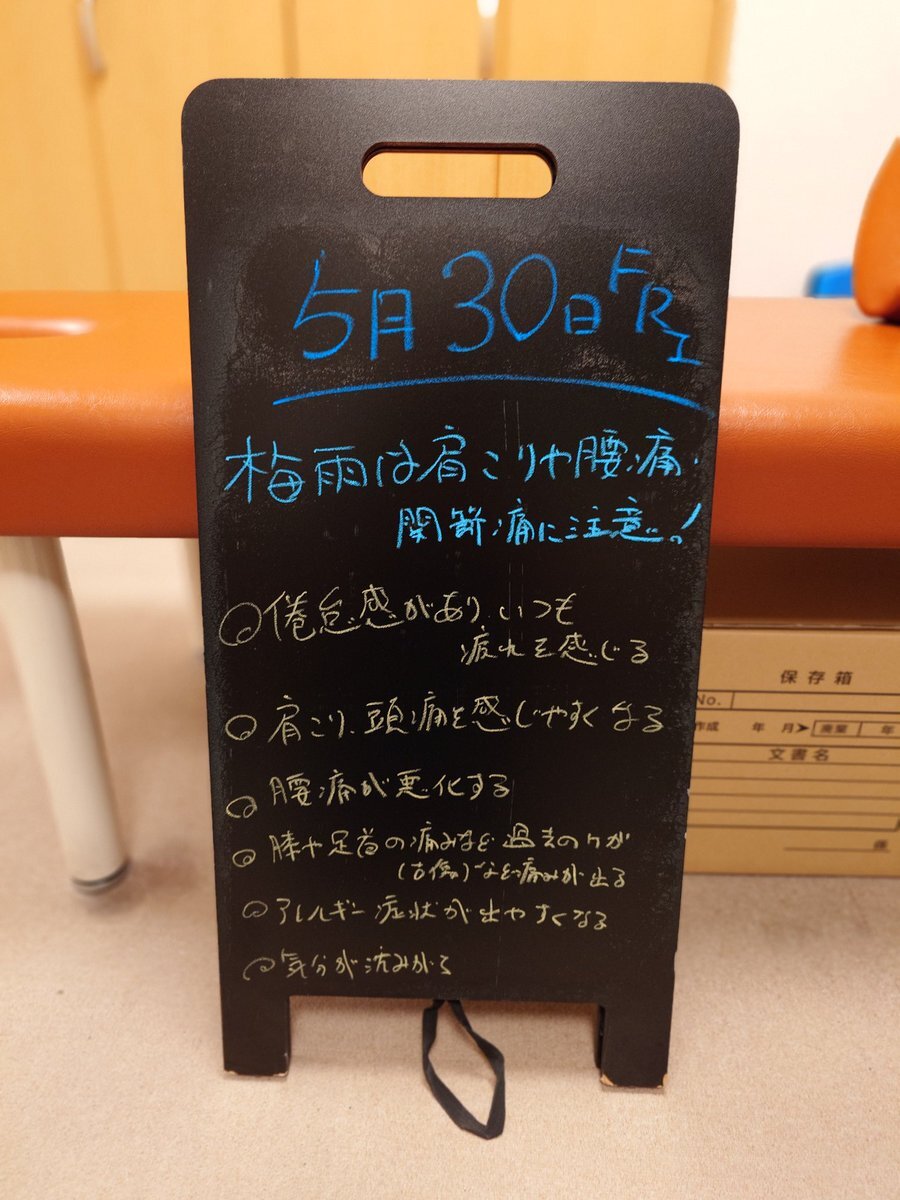 5月30日 FRI
梅雨は肩こりや腰痛・
関節痛に注意!
◎倦怠感があり、いつも
疲れを感じる
◎肩こり、頭痛を感じやすくなる
◎腰痛が悪化する
◎膝や足首の痛みなど過去のケガ
(古傷)など痛みが出る
◎アレルギー症状が出やすくなる
◎気分が沈みがち
保存箱
No.
作成 年 月➤ 廃棄 年
文書名
係